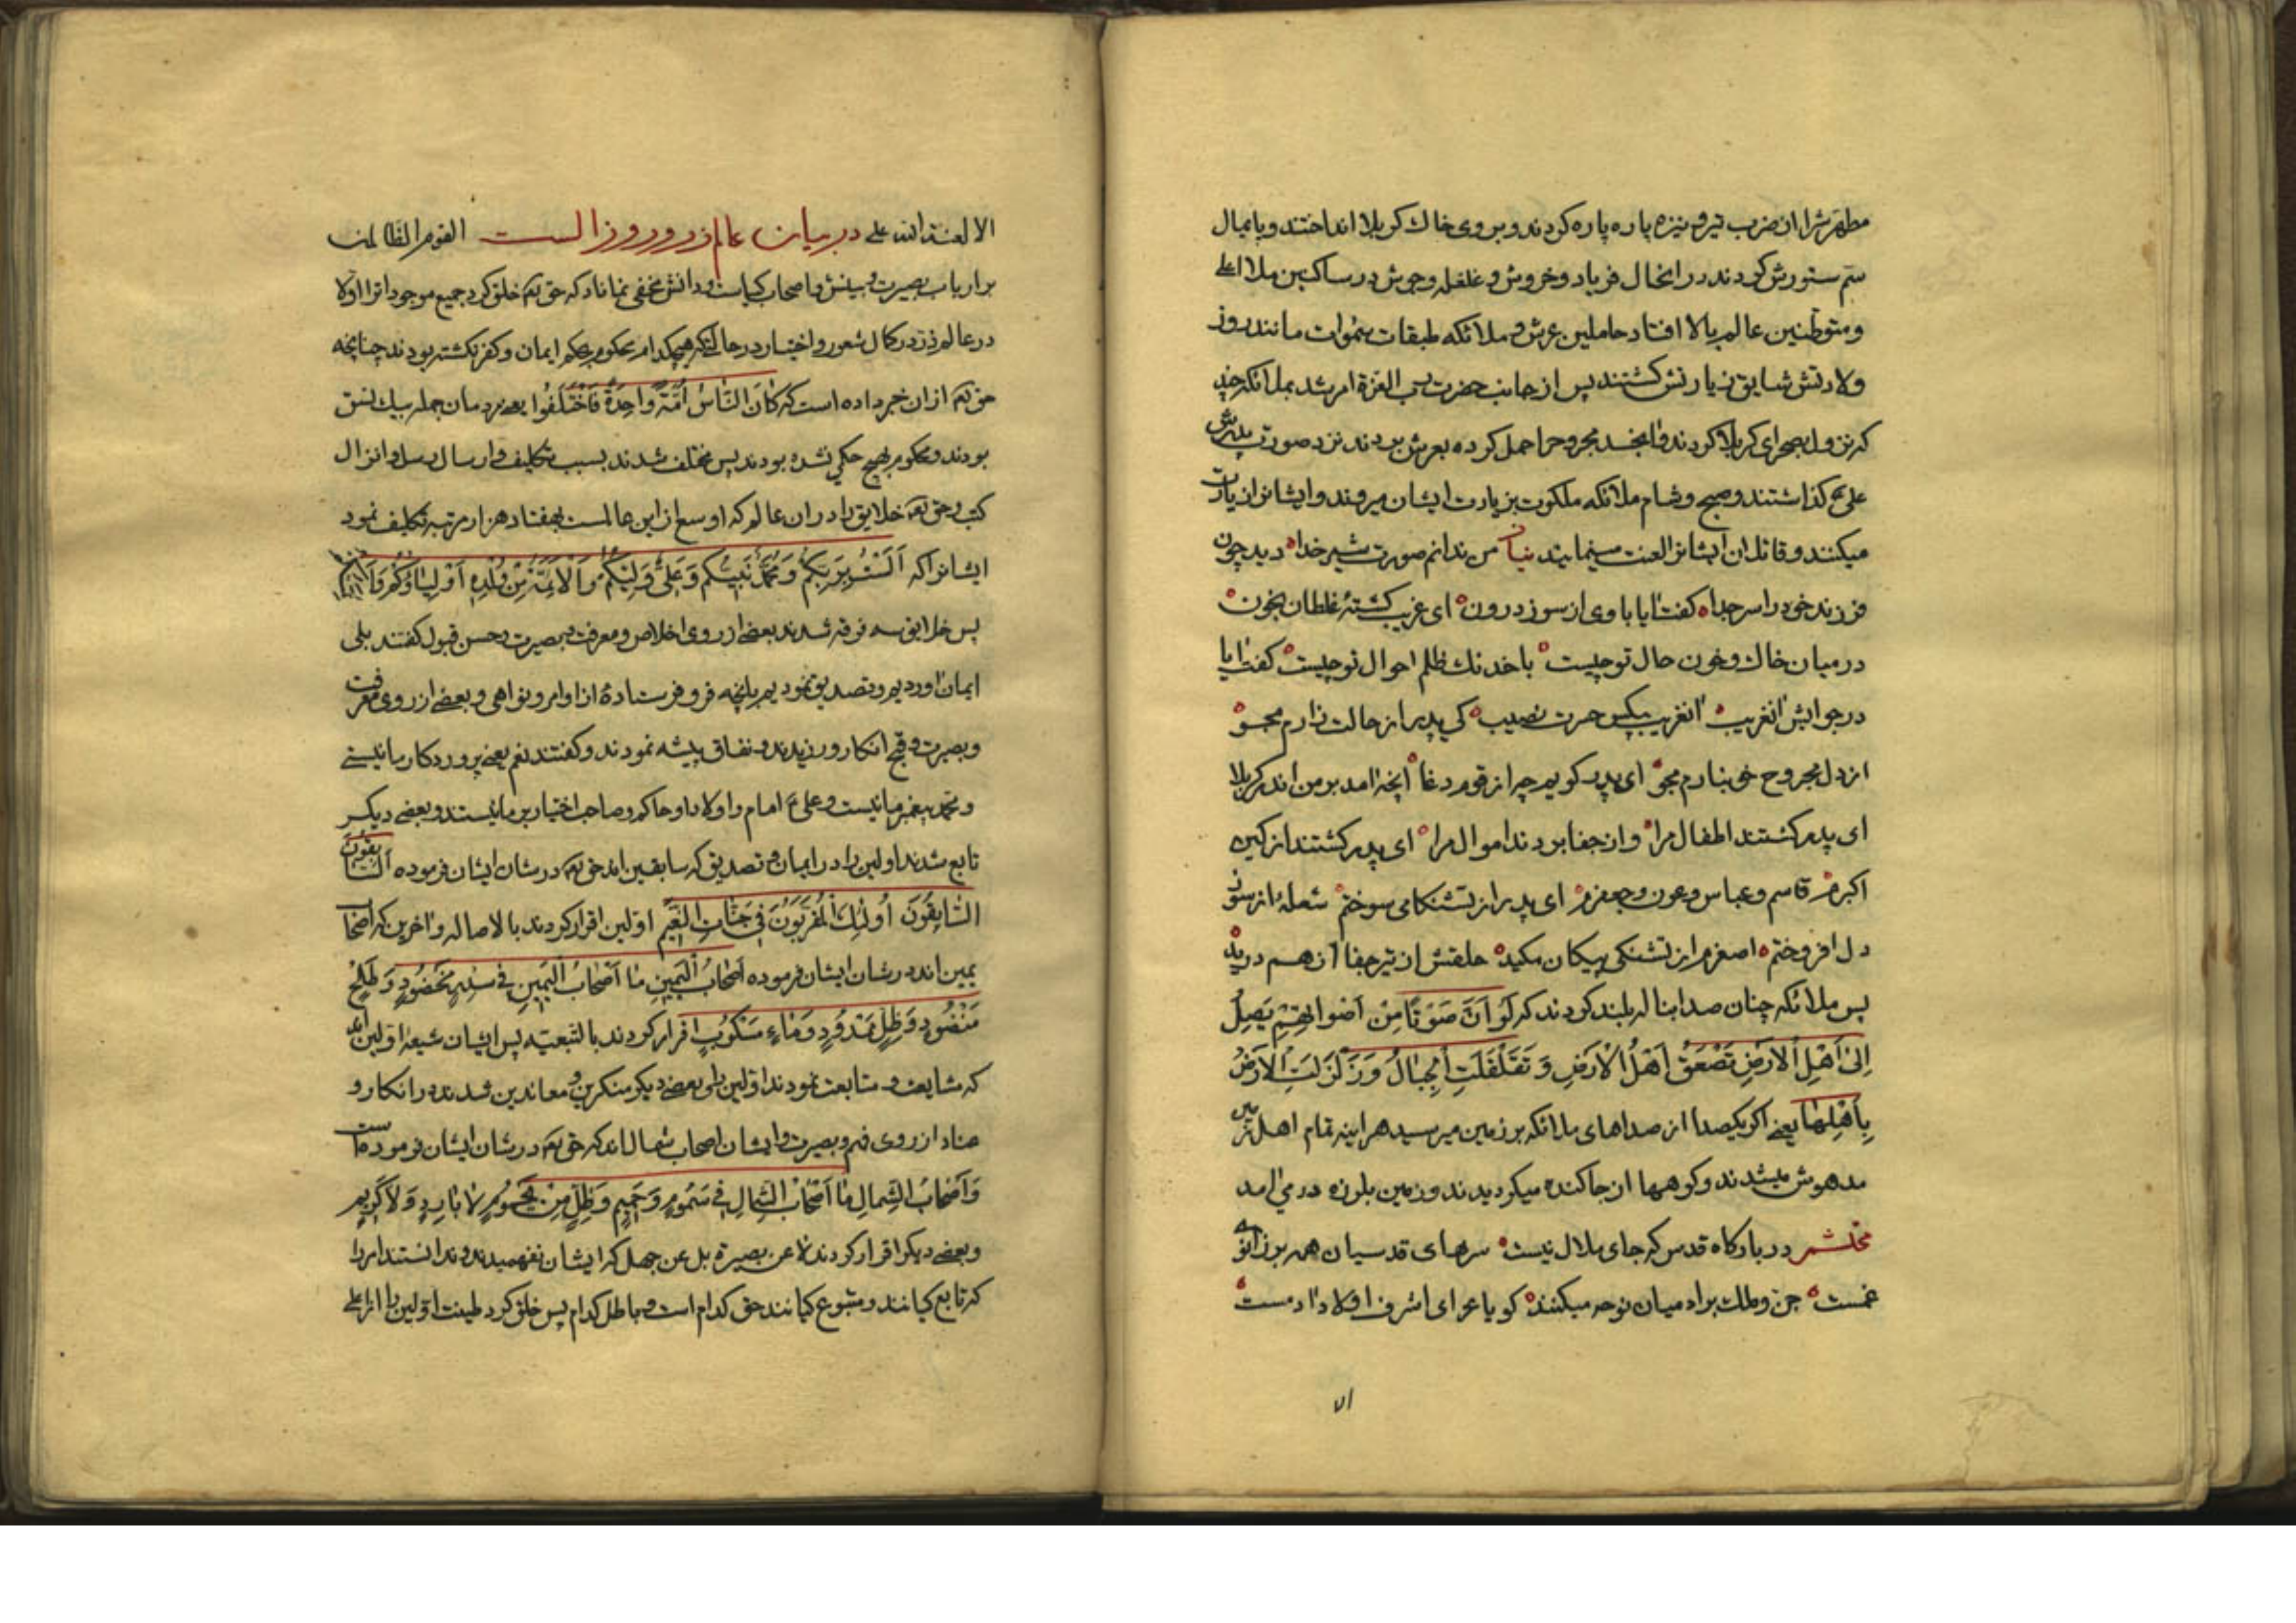 مطهرش را از ضرب تیر و نیزه پاره پاره کردند و بر روی خاک کربلا انداختند و پایمال
سم ستورش کردند در انحال فریاد و خروش و غلغله و جوش در ساکنین ملا اعلی
و متوطنین عالم بالا افتاد حاملین عرش و ملائکه طبقات سموات مانند روز
ولادتش شایق زیارتش کشتند پس از جانب حضرت رب العزة امر شد بملائکه چند
که نزول بصحرای کربلا کردند و جسد مجروحرا حمل کرده بعرش بردند نزد صورت پدرش
علی ع کذاشتند و صبح و شام ملائکه ملکوت بزیارت ایشان میروند و ایشانرا زیارت
میکنند و قاتلان ایشانرا لعنت مینمایند من ندانم صورت شیر خدا دید چون
فرزند خود را سر جدا کفت ایا با وی از سوز درون ای غریب کشتهٔ غلطان بخون
در میان خاک و خون حال تو چیست با خدنک ظلم احوال تو چیست کفت ایا
در جوابش انغریب انغریب بیکس حسرت نصیب کی پدر از حالت زارم مجو
از دل مجروح خونبارم مجو ای پدر کویم چه از قوم دغا آنچه امد بر من اندر کربلا
ای پدر کشتند اطفال مرا و از جفا بردند اموال مرا ای پدر کشتند از کین
اکبرم قاسم و عباس و عون و جعفرم ای پدر از تشنکامی سوختم شعلهٔ از سوز
دل افروختم اصغرم از تشنکی پیکان مکید حلقش از تیر جفا از هم درید
پس ملائکه چنان صدا بناله بلند کردند که لَوْ اَنَّ صَوْتًا مِنْ اَصْواتِهِمْ یَصِلُ
اِلیٰ اَهْلِ الاَرْضِ تَصْعَقُ اَهْلُ الْاَرْضِ وَ تَقَلْقَلَتِ الْجِبَالُ وَ زَلْزَلَتِ الاَرْضُ
بِاَهْلِهَا یعنی اکر یکصدا از صداهای ملائکه بر زمین میرسید هراینه تمام اهل زمین
مدهوش میشدند و کوهها از جا کنده میکردیدند و زمین بلرزه در می امد
محتشم در بارکاه قدس که جای ملال نیست سرهای قدسیان همه بر زانوی
غمست جن و ملک بر ادمیان نوحه میکنند کویا عزای اشرف اولاد ادمست
الا لعنة الله علی در بیان عالم ذر و روز الست القوم الظالمین
بر ارباب بصیرت و بینش و اصحاب کیاست و دانش مخفی نماناد که حق تع خلق کرد جمیع موجوداترا اولا
در عالم ذر در کمال شعور و اختیار در حالتیکه هیچکدام محکوم بحکم ایمان و کفر نکشته بودند چنانچه
حق تع از ان خبر داده است که کَانَ النَّاسُ اُمَّةً وَاحِدَةً فَاخْتَلَفُوا یعنی مردمان جمله بیک نسق
بودند و محکوم بهیچ حکمی نشده بودند پس مختلف شدند بسبب تکلیف و ارسال رسل و انزال
کتب و حق تع خلایق را در ان عالم که اوسع از این عالمست بهفتاد هزار مرتبه تکلیف نمود
ایشانرا که اَلَسْتُ بِرَبِّکُمْ وَ مُحَمَّدٌ نَبِیُّکُم وَ عَلِیٌّ وَلِیُّکُمْ وَ الْاَئِمَّةُ مِنْ وُلْدِهِ اَوْلِیَاؤُکُمْ
پس خلایق سه فرقه شدند بعضی از روی اخلاص و معرفت و بصیرت و حسن قبول کفتند بلی
ایمان اوردیم و تصدیق نمودیم بانچه فرو فرستادهٔ از اوامر و نواهی و بعضی از روی معرفت
و بصیرت و قبح انکار ورزیدند و نفاق پیشه نمودند و کفتند نعم یعنی پروردکار ما نیستی
و محمد پیغمبر ما نیست و علی ع امام و اولاد او حاکم و صاحب اختیار بر ما نیستند و بعضی دیکر
تابع شدند اولین را در ایمان و تصدیق که سابقین اند حق تع در شان ایشان فرموده اَلسَّابِقُونَ
السَّابِقُونَ اُولٰئِکَ الْمُقَرَّبُونَ فِی جَنَّاتِ النَّعِیمِ اولین اقرار کردند بالاصاله و اخرین که اصحاب
یمین اند در شان ایشان فرموده اَصْحَابُ الْیَمِینِ مَا اَصْحَابُ الْیَمِینِ فِی سِدْرٍ مَخْضُودٍ وَ طَلْحٍ
مَنْضُودٍ وَ ظِلٍّ مَمْدُودٍ وَ مَاءٍ مَسْکُوبٍ اقرار کردند بالتبعیه پس ایشان شیعه اولین اند
که مشایعت و متابعت نمودند اولین را و بعضی دیکر منکرین و معاندین شدند و انکار و
عناد از روی فهم و بصیرت و ایشان اصحاب شمال اند که حق تع در شان ایشان فرموده است
وَ اَصْحَابُ الشِّمالِ مَا اَصْحَابُ الشِّمالِ فِی سَمُومٍ وَ حَمِیمٍ وَ ظِلٍّ مِنْ یَحْمُومٍ لَا بَارِدٍ وَ لَا کَرِیمٍ
و بعضی دیکر اقرار کردند لا عن بصیرة بل عن جهل که ایشان نفهمیدند و ندانستند امر را
که تابع کیانند و متبوع کیانند حق کدام است و باطل کدام پس خلق کرد طینت اولین را از اعلی